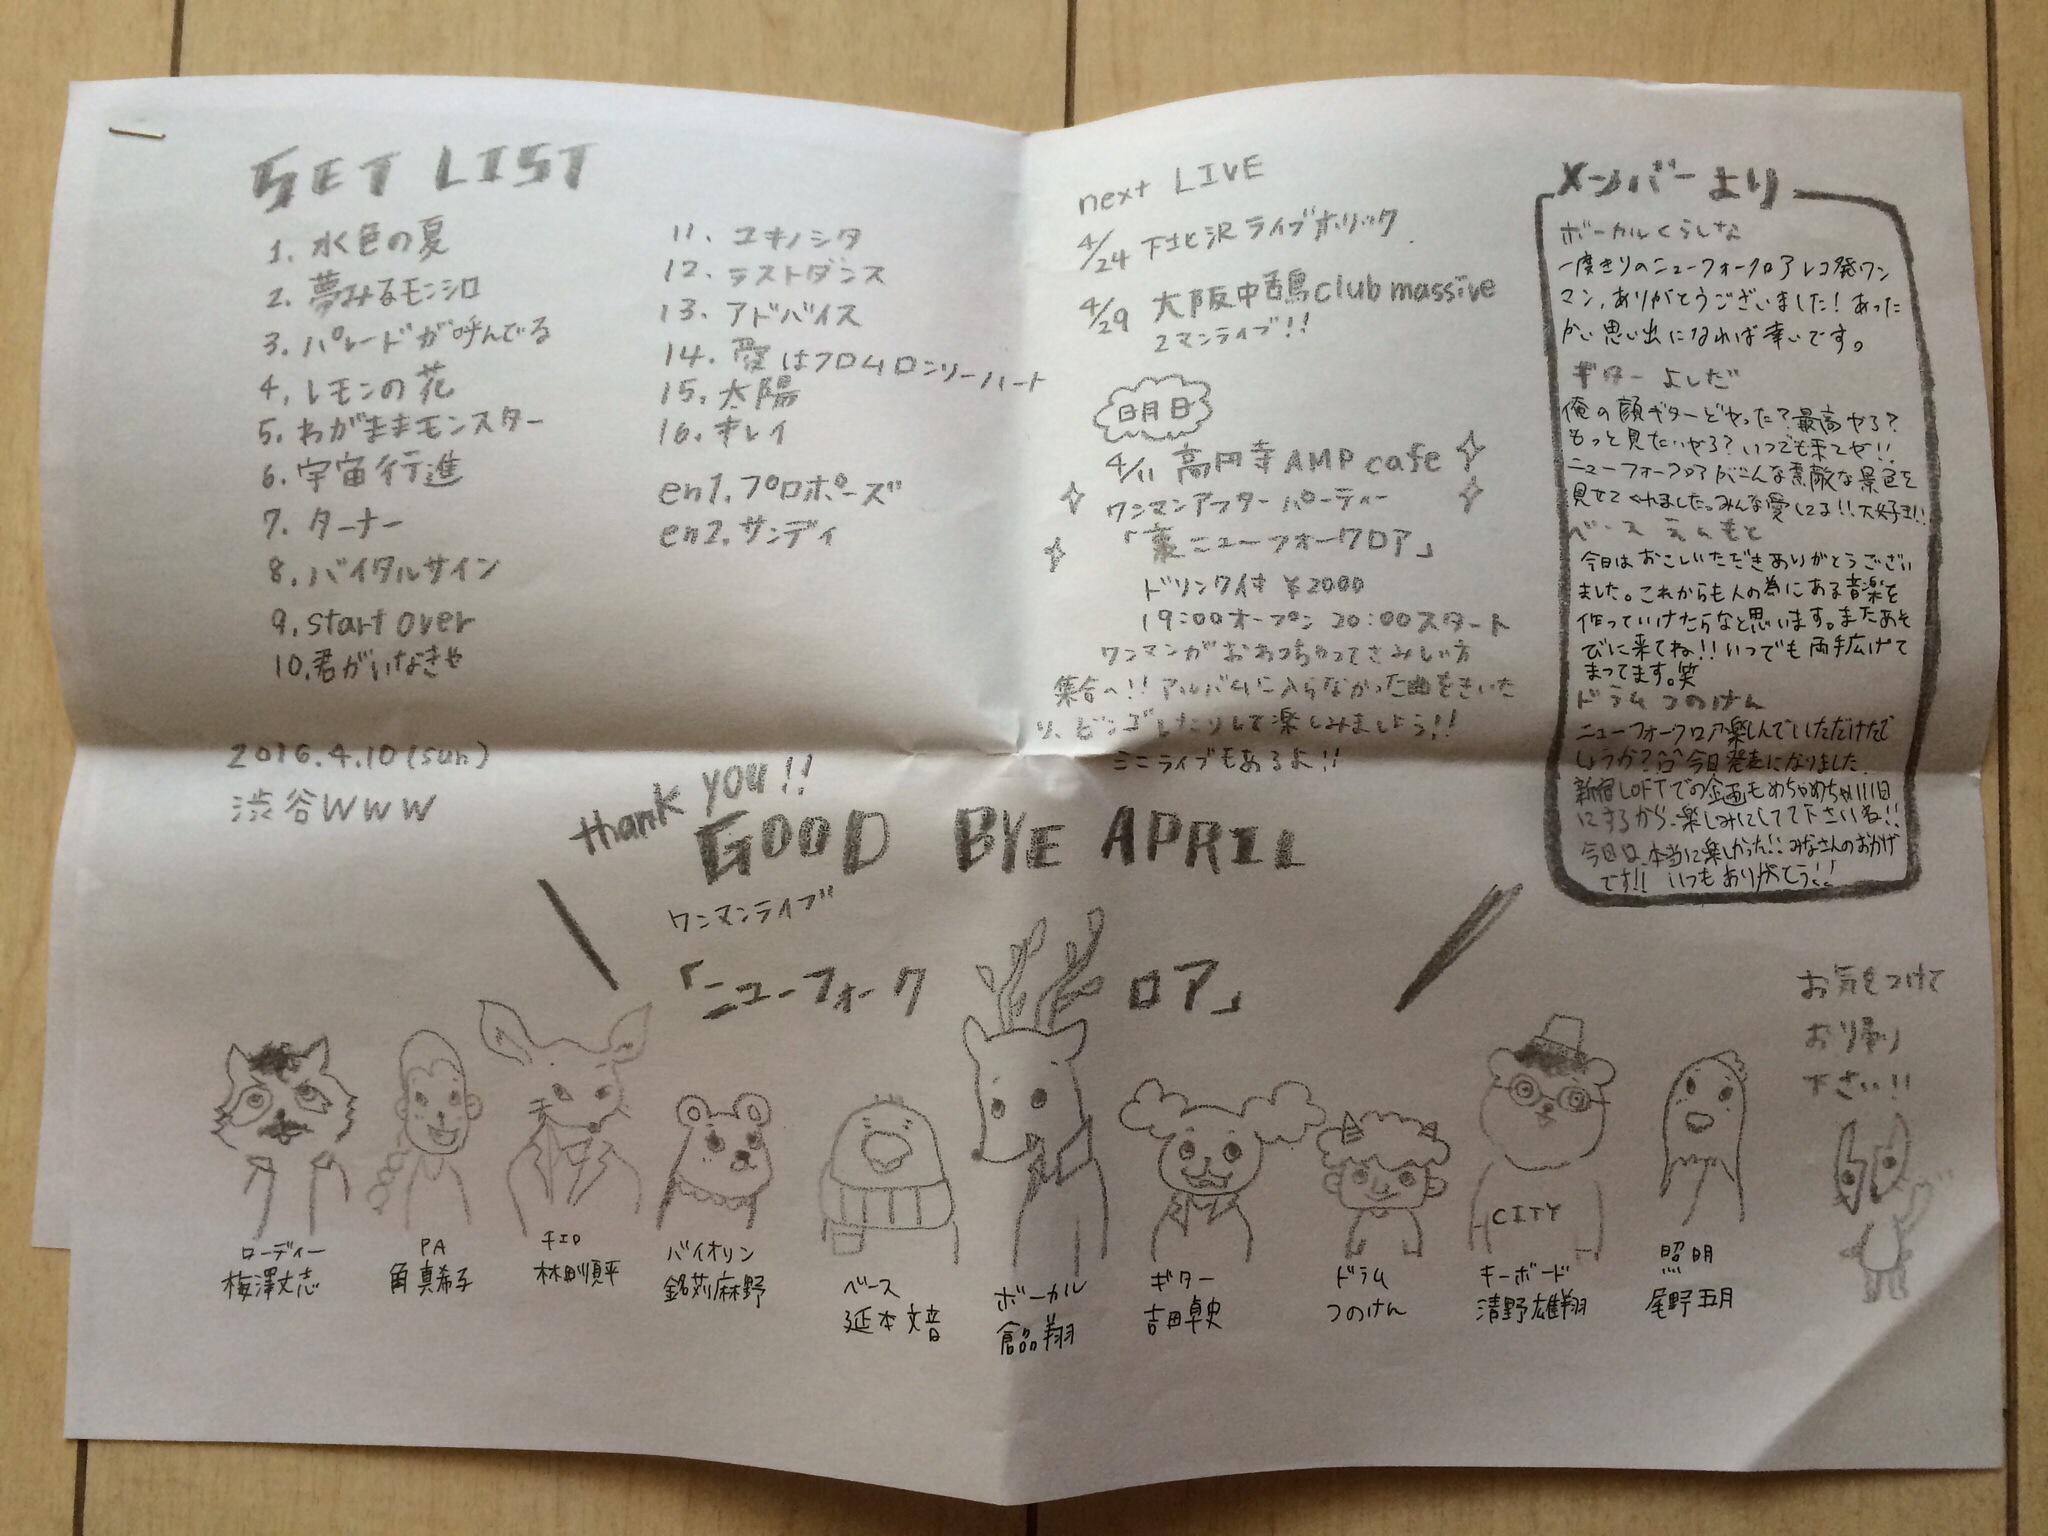 SET LIST
1. 水色の夏
2. 夢みるモンシロ
3. パレードが呼んでる
4. レモンの花
5. わがままモンスター
6. 宇宙行進
7. ターナー
8. バイタルサイン
9. start over
10. 君がいなきゃ
11. ユキノシタ
12. テストダンス
13. アドバイス
14. 愛はフロムロンリーハート
15. 太陽
16. キレイ
en1. プロポーズ
en2. サンディ
2016.4.10(sun)
渋谷WWW
next LIVE
4/24 下北沢ライブホリック
4/29 大阪中百鳥club massive
2マンライブ!!
明日
4/11 高円寺AMP cafe
ワンマンアフターパーティー
「裏ニューフォークロア」
ドリンク付 ¥2000
19:00オープン 20:00スタート
ワンマンがおわっちゃってさみしい方
集合へ!! アルバムに入らなかった曲をきいた
り、ビンゴしたりして楽しみましょう!!
ミニライブもあるよ!!
メンバーより
ボーカルくらしな
一度きりのニューフォークロアレコ発ワン
マン、ありがとうございました! あった
かい思い出になれば幸いです。
ギター よしだ
俺の顔ギターどやった?最高やろ?
もっと見たいやろ? いつでも来てや!!
ニューフォークロアがこんな素敵な景色を
見せてくれました。みんな愛してる!! 大好き!!
ベース えんもと
今日はおこしいただきありがとうござい
ました。これからも人の為にある音楽を
作っていけたらなと思います。またあそ
びに来てね!! いつでも両手広げて
まってます。笑
ドラム つのけん
ニューフォークロア楽しんでいただけたで
しょうか?^^ 今日発表になりました
新宿LOFTでの企画もめちゃめちゃいい日
にするから、楽しみにしてて下さいね!!
今日は本当に楽しかった!! みなさんのおかげ
です!! いつもありがとう!!
thank you!!
GOOD BYE APRIL
ワンマンライブ
「ニューフォークロア」
お気をつけて
お帰り
下さい!!
CITY
ローディー
梅澤丈志
PA
角真希子
チェロ
林田順平
バイオリン
銘苅麻野
ベース
延本文音
ボーカル
倉品翔
ギター
吉田卓史
ドラム
つのけん
キーボード
清野雄翔
照明
尾野五月